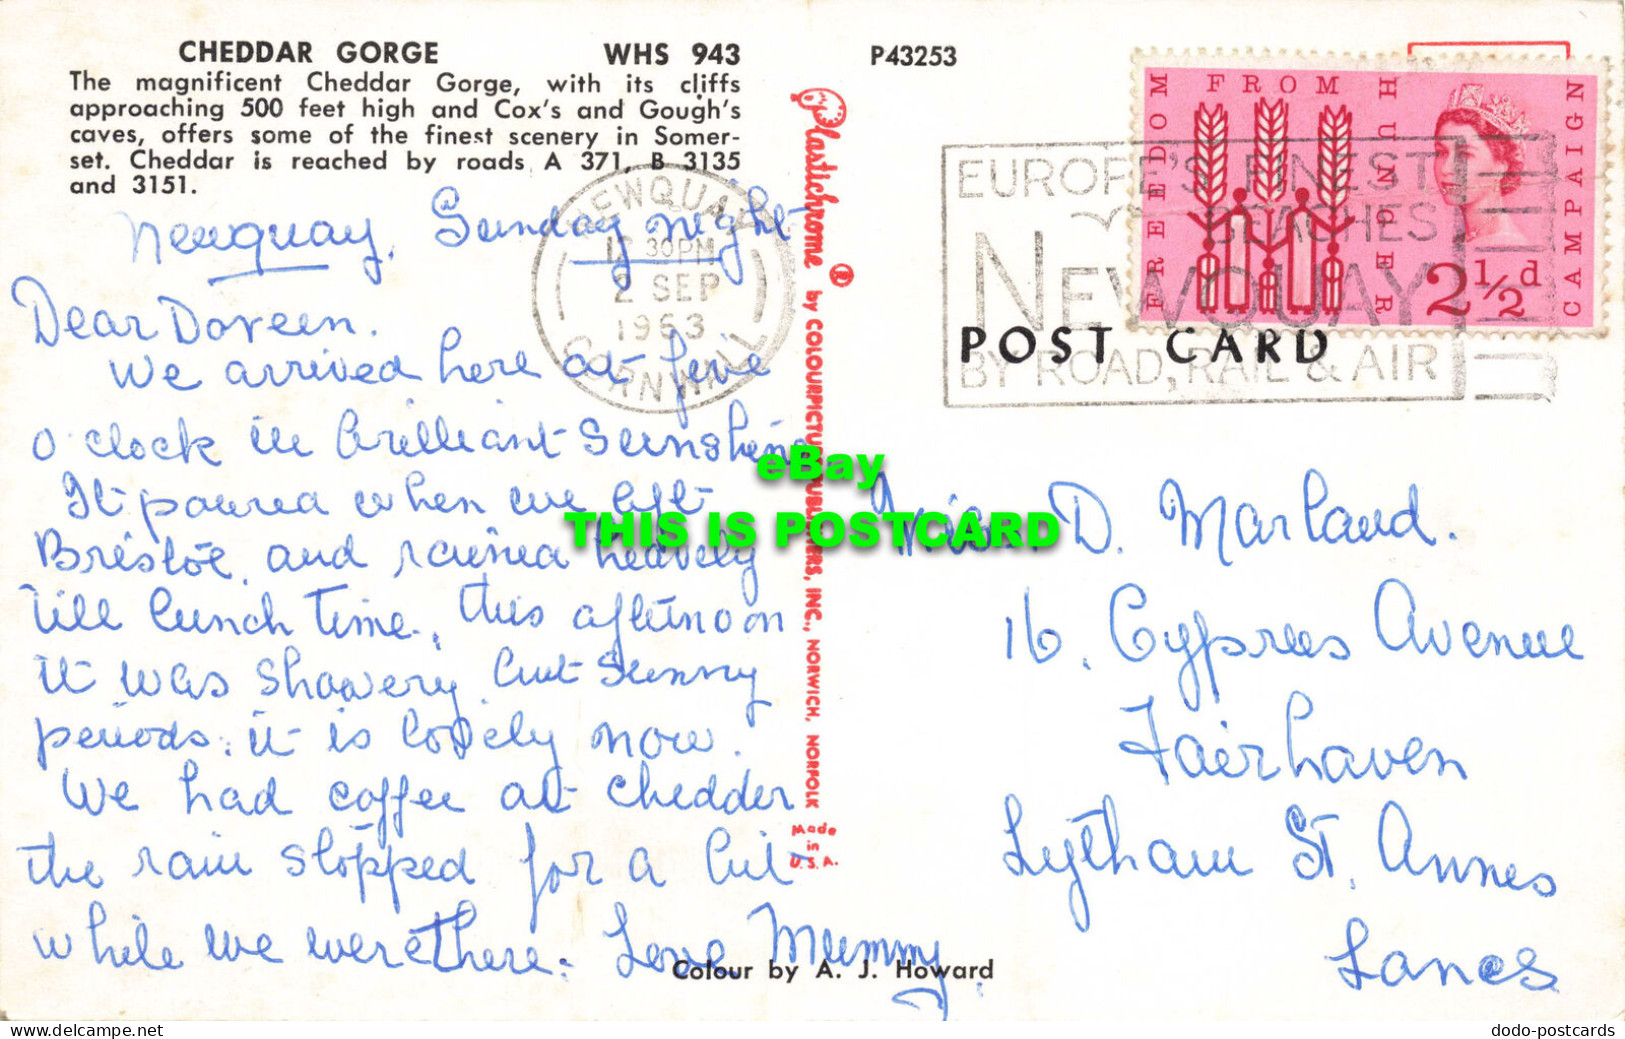 CHEDDAR GORGE WHS 943
The magnificent Cheddar Gorge, with its cliffs
approaching 500 feet high and Cox's and Gough's
caves, offers some of the finest scenery in Somer-
set. Cheddar is reached by roads A 371, B 3135
and 3151.
Newquay. Sunday night
Dear Doreen.
We arrived here at five
o clock in brilliant Sunshine
It poured when we left
Bristol, and rained heavily
till lunch time, this afternoon
it was showery but Sunny
periods. it is lovely now.
We had coffee at Chedder
the rain stopped for a bit
while we were there. Love Mummy
Colour by A. J. Howard
NEWQUAY
30PM
2 SEP
1963
CORNWALL
Plastichrome ® by COLOURPICTURE PUBLISHERS, INC., NORWICH, NORFOLK
Made
in
U.S.A.
P43253
FREEDOM FROM HUNGER CAMPAIGN
2½d
EUROPE'S FINEST
BEACHES
NEWQUAY
BY ROAD, RAIL & AIR
POST CARD
Miss. D. Marland.
16. Cypress Avenue
Fairhaven
Lytham St. Annes
Lancs
eBay
THIS IS POSTCARD
Delcampe.net
dodo-postcards